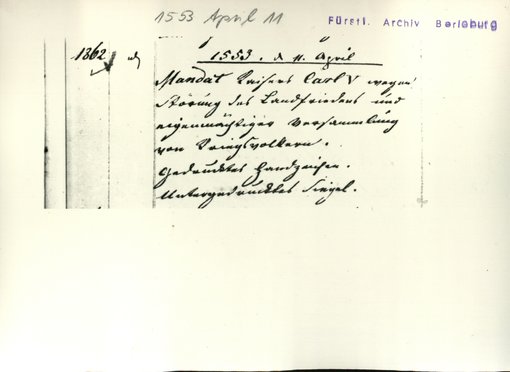 1553 April 11
Fürstl. Archiv Berleburg
1362
1553. d. 11. April
Mandat Kaisers Carl V wegen
Störung des Landfriedens und
eigenmächtiger Versammlung
von Kriegsvolkern.
Gedrucktes Handzeichen.
Untergedrucktes Siegel.